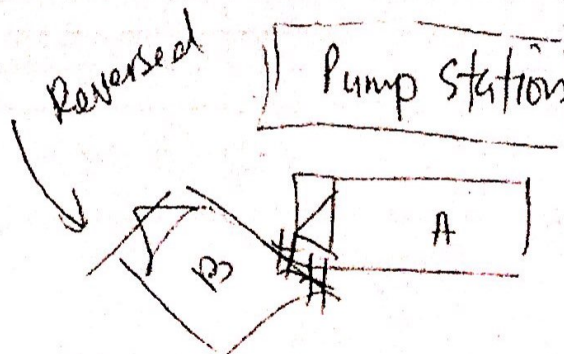 Reversed
Pump Station
A
B